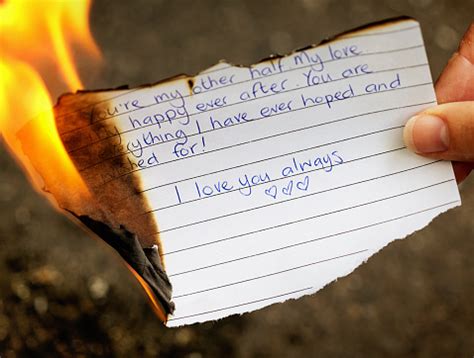 You're my other half My love
my happy ever after. You are
everything I have ever hoped and
for!
I love you always
♡♡♡